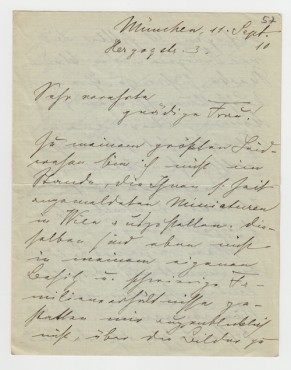 57
München, 11. Sept.
Herzogstr. 3. 10
Sehr verehrte
gnädige Frau!
Zu meinem größten Leid-
wesen bin ich nicht im
Stande, die Ihnen s. Zeit
angemeldeten Miniaturen
in Wien auszustellen. Die-
selben sind eben nicht
in meinem eigenen
Besitz u. schwierige Fa-
milienverhältnisse ge-
statten mir augenblicklich
nicht, über die Bilder zu